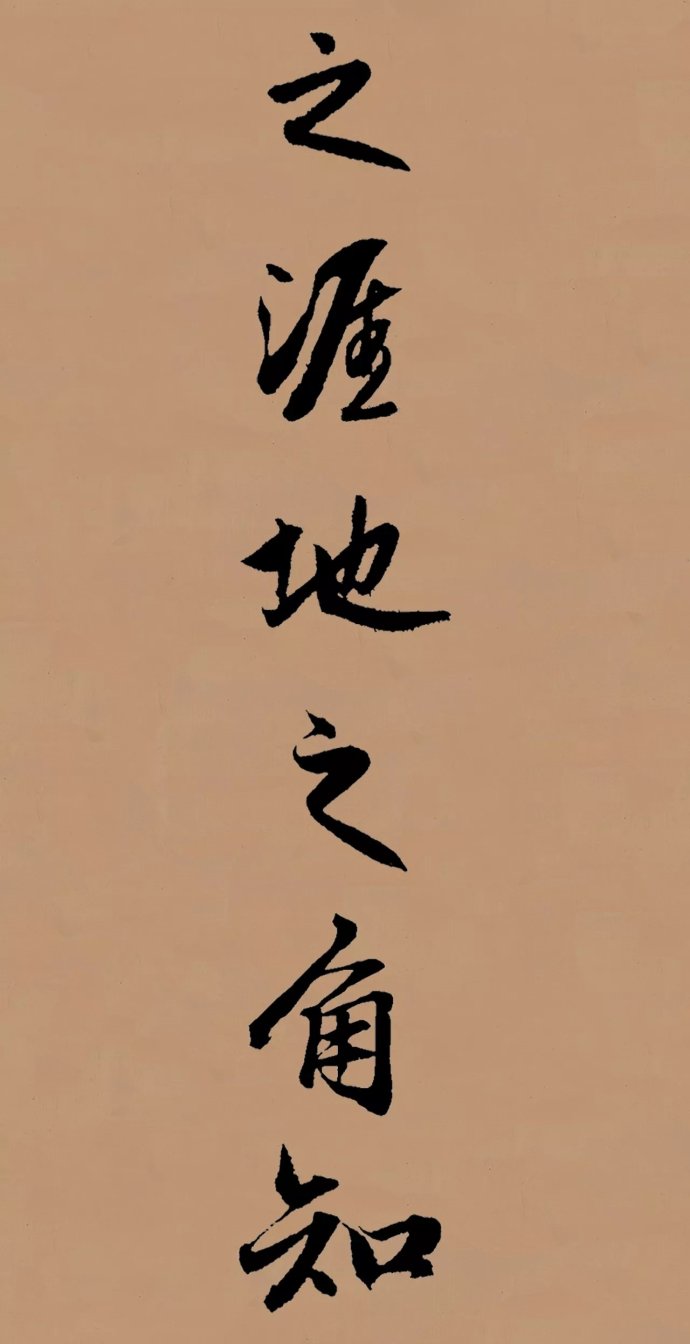 之涯地之角知